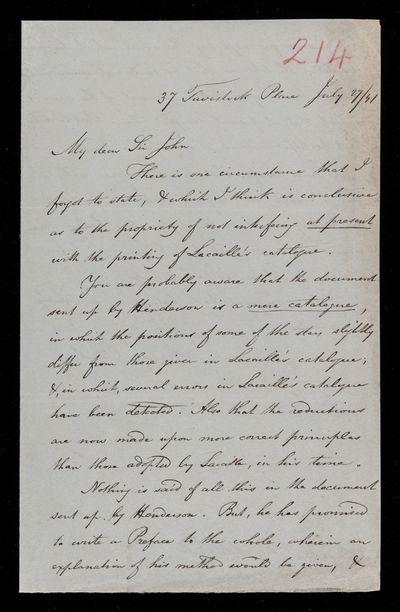 214
37 Tavistock Place July 27/41
My dear Sir John
There is one circumstance that I
forgot to state, & which I think is conclusive
as to the propriety of not interfering at present
with the printing of Lacaille's catalogue.
You are probably aware that the document
sent up by Henderson is a mere catalogue,
in which the positions of some of the stars slightly
differ from those given in Lacaille's catalogue;
&, in which, several errors in Lacaille's catalogue
have been detected. Also that the reductions
are now made upon more correct principles
than those adopted by Lacaille, in his time.
Nothing is said of all this in the document
sent up by Henderson. But, he has promised
to write a Preface to the whole, wherein an
explanation of his method would be given, &